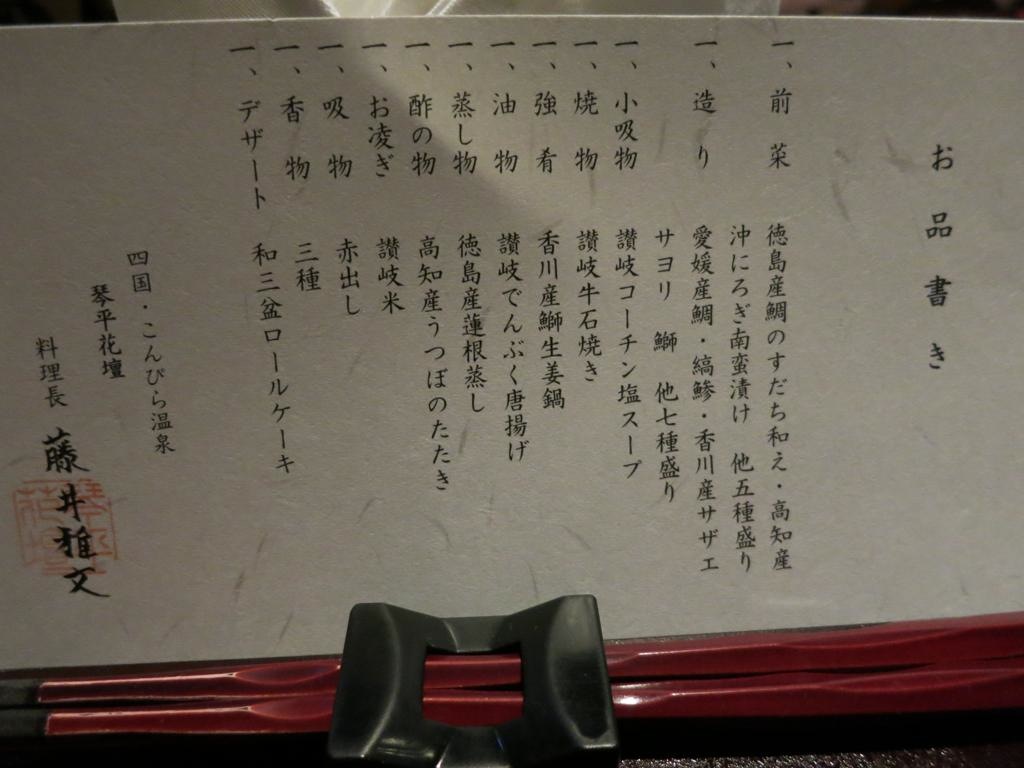 お品書き
一、前菜 徳島産鯛のすだち和え・高知産
沖にろぎ南蛮漬け 他五種盛り
一、造り 愛媛産鯛・縞鯵・香川産サザエ
サヨリ 鰤 他七種盛り
一、小吸物 讃岐コーチン塩スープ
一、焼物 讃岐牛石焼き
一、強肴 香川産鰤生姜鍋
一、油物 讃岐でんぶく唐揚げ
一、蒸し物 徳島産蓮根蒸し
一、酢の物 高知産うつぼのたたき
一、お凌ぎ 讃岐米
一、吸物 赤出し
一、香物 三種
一、デザート 和三盆ロールケーキ
四国・こんぴら温泉
琴平花壇
料理長 藤井雅文